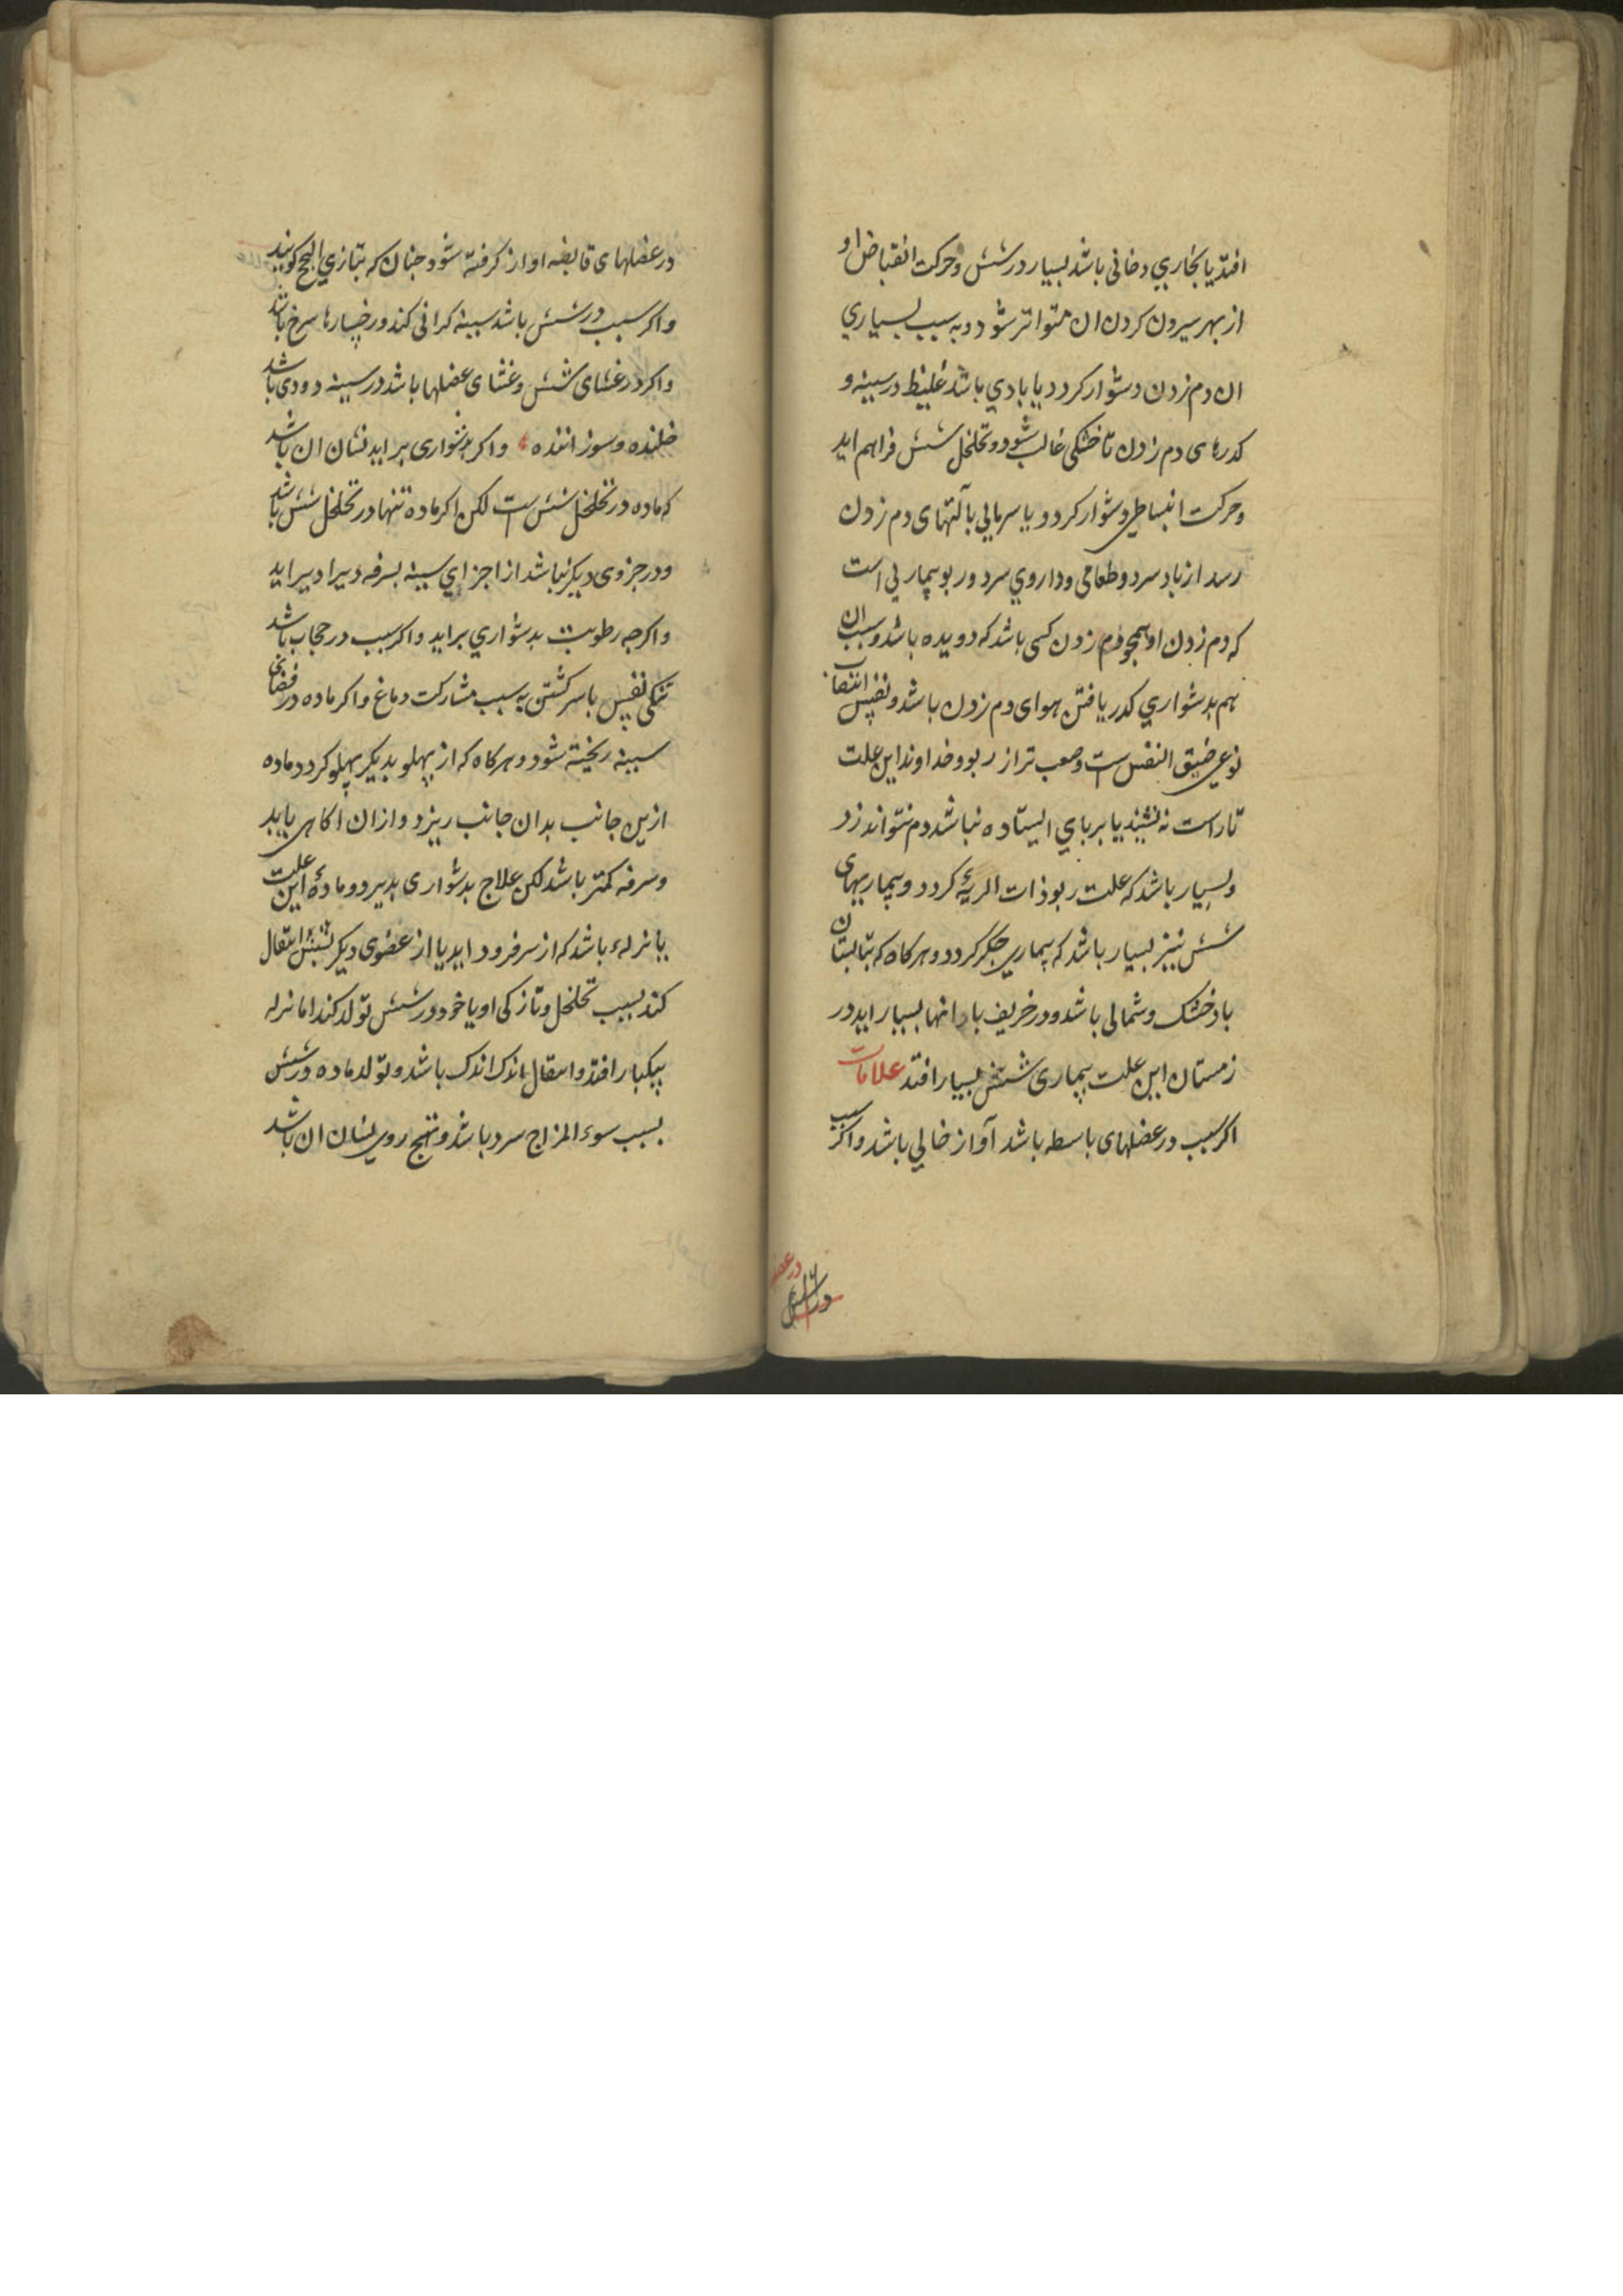 افتد یا بخاري دخانی باشد بسیار در شش و حرکت انقباض او
از بهر بیرون کردن ان متواتر شود و به سبب بسیاري
ان دم زدن دشوار کردد یا بادي باشد غلیظ در سینه و
کدرهای دم زدن تا خشکی غالب شود و تخلخل شش فراهم اید
و حرکت انبساطی دشوار کردد و یا سرمایی بآلتهای دم زدن
رسد از باد سرد و طعامی و داروي سرد و ربو بیماریی است
که دم زدن او همچو دم زدن کسی باشد که دویده باشد و سبب ان
هم بدشواري کدر یافتن هوای دم زدن باشد و نفس انتصاب
نوعی ضیق النفس است و صعب تر از ربو و خداوند این علت
تا راست نه نشیند یا بر پاي ایستاده نباشد دم نتواند زد
و بسیار باشد که علت ربو ذات الریهٔ کردد و بیماریهای
شش نیز بسیار باشد که بیماري جکر کردد و هر کاه که تابستان
باد خشک و شمالی باشد و در خریف بارانها بسیار اید در
زمستان این علت بیماری شش بسیار افتد علامات
اکر سبب در عضلهای باسطه باشد آواز خالي باشد و اکر سبب
در عضلهای قابضه اواز کرفته شود چنان که بتازي ابح کویند
و اکر سبب در شش باشد سینه کرانی کند و رخسارها سرخ باشد
و اکر در غشای شش و غشای عضلها باشد در سینه دردی باشد
خلنده و سوزاننده و اکر بدشواری براید نشان ان باشد
که ماده در تخلخل شش است لکن اکر ماده تنها در تخلخل شش باشد
و در جزوی دیکر نباشد از اجزاي سینه بسرفه دیرا دیر اید
و اکرچه رطوبت بدشواري براید و اکر سبب در حجاب باشد
تنکی نفس با سر کشتن به سبب مشارکت دماغ و اکر ماده در فضای
سینه ریخته شود و هر کاه که از پهلو بدیکر پهلو کردد ماده
ازین جانب بدان جانب ریزد و از ان اکاهی یابد
و سرفه کمتر باشد لکن علاج بدشواری پذیرد و مادهٔ این علت
یا نزله باشد که از سر فرود اید یا از عضوی دیکر بشش انتقال
کند بسبب تخلخل و تازکی او یا خود در شش تولد کند اما نزله
بیکبار افتد و انتقال اندک اندک باشد و تولد ماده در شش
بسبب سوء المزاج سرد باشد و تهبج روی نشان ان باشد